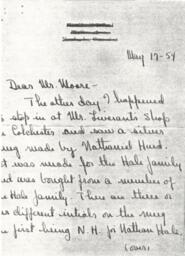 May 17-54
Dear Mr. Moore-
The other day I happened
stop in at Mr. Liverant's Shop
Colchester and saw a silver
mug made by Nathaniel Hurd.
t was made for the Hale family
nd was bought from a member of
Hale family. There are three or
different initials on the mug
first being N.H. for Nathan Hale.
(over)